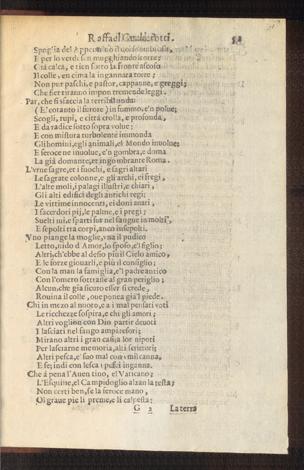 Raffael Gualterotti.
Spoglia del Appennino
E per lo verde sen mugghiando scorre;
Già calca, e tien sotto la fronte
Il colle, en cima la ingannara torre;
Non pur paschi, e pastor, cappanne, e greggi;
Che fier tiranni impon tremende leggi.
Par, che si sfaccia la terribil onda
(E' cotanto il furore) in fummo, e'n polue;
Scogli, rupi, e città crolla, e profonda,
E da radice sotto sopra volue;
E con mistura turbolente immonda
Gli homini, egli animali, el Mondo inuolue;
E feroce ne inuolue, e'n gombra, e doma
La già domante, et ingombrante Roma.
L'vrne sagre, et i fuochi, e sagri altari
Le sagrate colonne, e gli archi, ei fregi,
L'alte moli, i palagi illustri, e chiari,
Gli alti edifici degli antichi regi;
Le vittime innocenti, ei doni amari,
I sacerdoti pij, le palme, e i pregi;
Suelti mi, e sparti fur nel sangue
E sepolti tra corpi, anco insepolti.
Vno piange la moglie, vna il pudico
Letto, nido d'Amor, lo sposo, e'l figlio;
Altri, ch'ebbe al desio più il Cielo amico,
E le forze giouarli, e più il consiglio;
Con la man la famiglia, e'l padre antico
Con l'omero sottrasse al gran periglio;
Alcun, che già sicuro esser si crede,
Rouina il colle, oue ponea già'l piede.
Chi in mezo al nuoto, e a i mal pensati voti
Le ricchezze sospira, e chi gli amori;
Altri voglion con Dio partir deuoti
I lasciati nel fango ampi tesori;
Mirano altri i gran casi a lor nipoti
Per lasciarne memoria, alti scrittori;
Altri pesca, e' suo mal con
E se; indi con lesca i pesci inganna.
Che à pena l'Auentino, el Vaticano;
L'Esquine, el Campidoglio alzan la testa;
Non certi ben, se la feroce mano,
O'l graue pie li preme, e li calpesta;
G 2 La terra